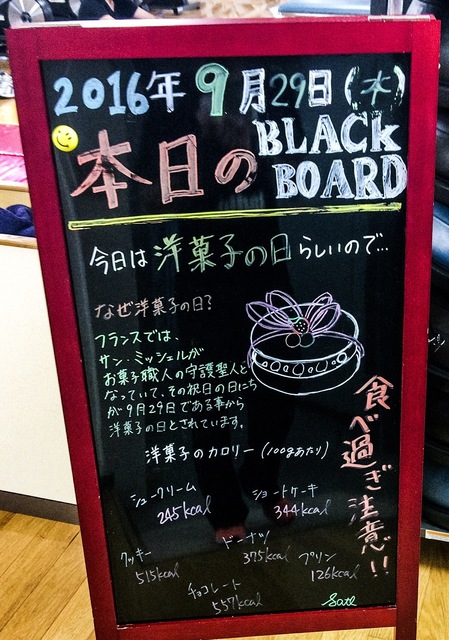 2016年 9月29日(木)
本日の BLACK BOARD
今日は洋菓子の日らしいので…
なぜ洋菓子の日?
フランスでは、
サン・ミッシェルが
お菓子職人の守護聖人と
なっていて、その祝日の日にち
が9月29日である事から
洋菓子の日とされています。
食べ過ぎ注意!!
洋菓子のカロリー(100gあたり)
シュークリーム
245kcal
ショートケーキ
344kcal
クッキー
515kcal
ドーナツ
375kcal
プリン
126kcal
チョコレート
557kcal